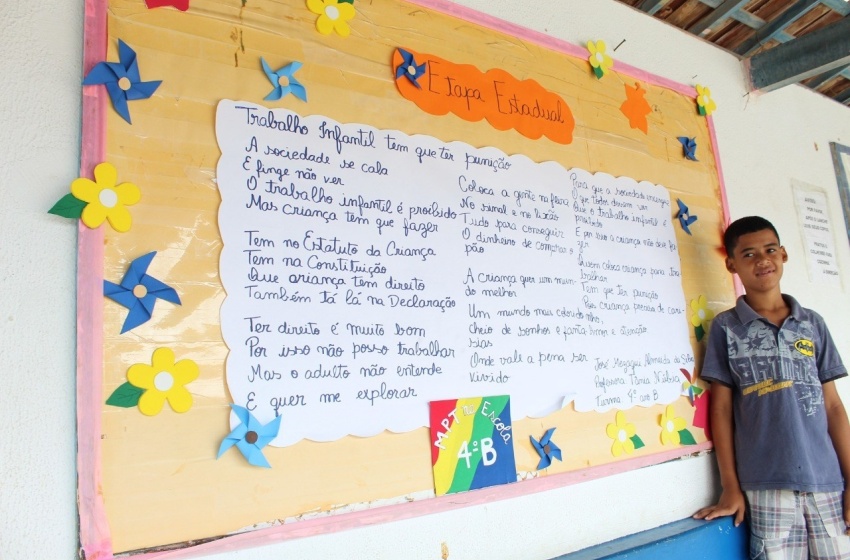 Etapa Estadual
Trabalho Infantil tem que ter punição
A sociedade se cala
E finge não ver
O trabalho infantil é proibido
Mas criança tem que fazer
Tem no Estatuto da Criança
Tem na Constituição
Que criança tem direito
Também tá lá na Declaração
Ter direito é muito bom
Por isso não posso trabalhar
Mas o adulto não entende
E quer me explorar
Coloca a gente na feira
No sinal e no lixão
Tudo para conseguir
O dinheiro de comprar o
pão
A criança quer um mun
do melhor
Um mundo mais colorido
cheio de sonhos e fanta
sias
Onde vale a pena ser
vivido
Para que a sociedade enxergue
O que todos devem ver
Que o trabalho infantil é
proibido
E por isso a criança não deve fa
zer
Quem coloca criança para tra
balhar
Tem que ter punição
Pois criança precisa de cari
nho, amor e atenção
José
Professora Tânia Núbia
Turma 4º ano B
MPT na Escola
4º B